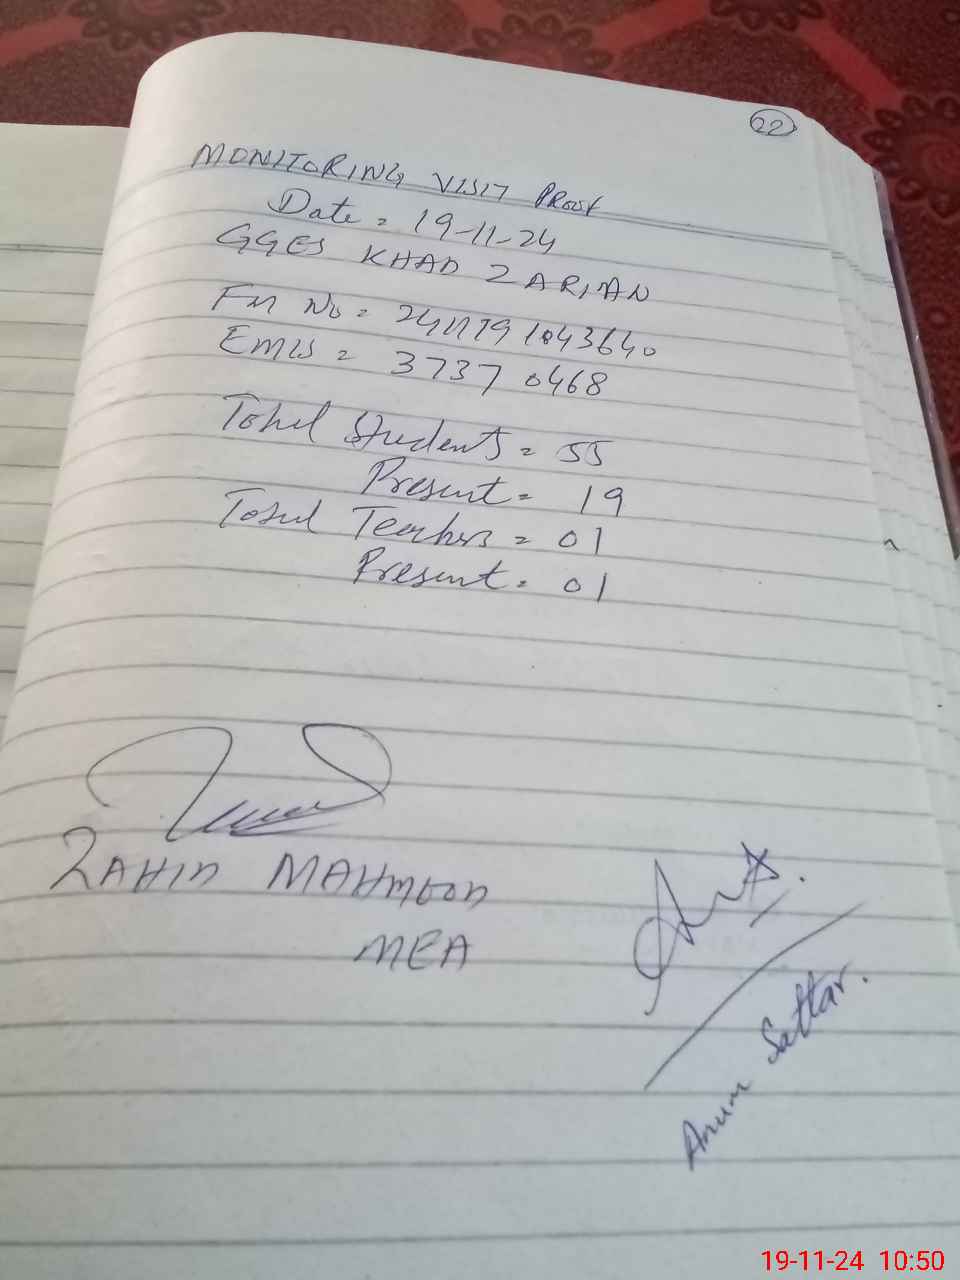 22
MONITORING VISIT PROOF
Date = 19-11-24
GGES KHAD ZARIAN
Fm No = 241119 1043640
Emis = 3737 0468
Total Students = 55
Present = 19
Total Teachers = 01
Present = 01
ZAHID MAHMOOD
MEA
Anum Sattar.
19-11-24 10:50